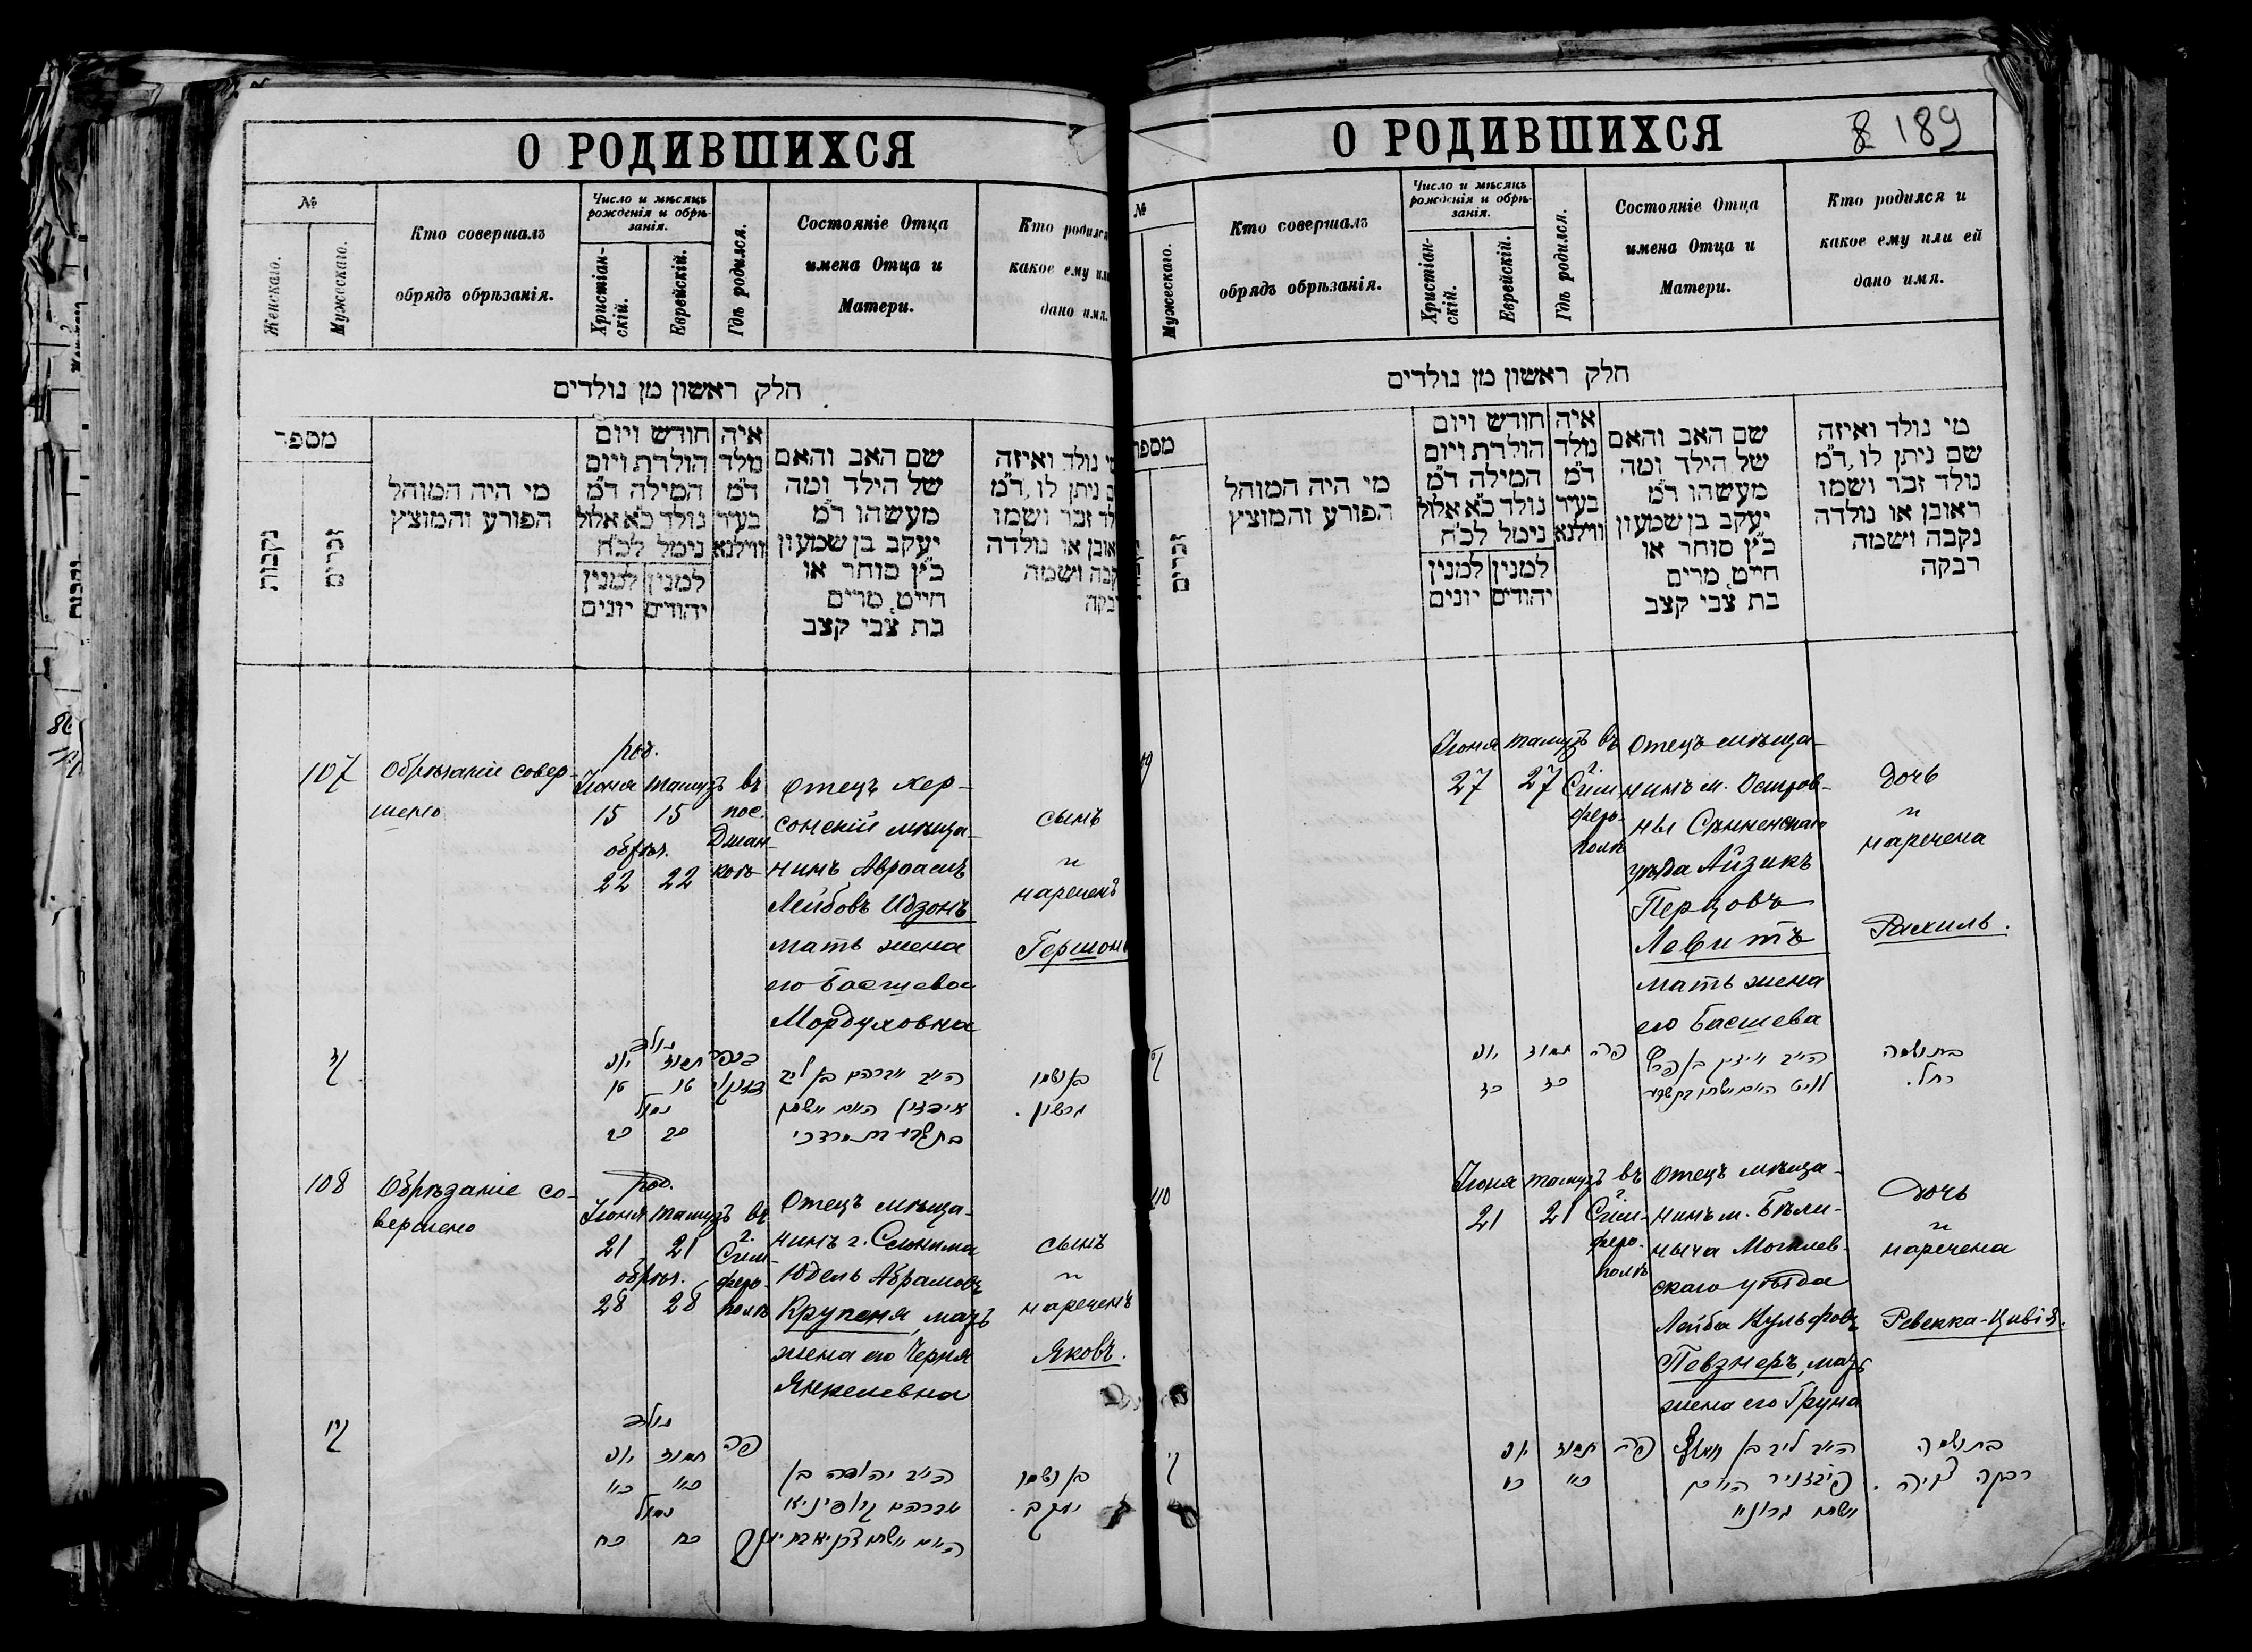 О РОДИВШИХСЯ
№
Женскаго.
Мужескаго.
Кто совершалъ
обрядъ обрѣзанія.
Число и мѣсяцъ
рожденія и обрѣ-
занія.
Христіан-
скій.
Еврейскій.
Гдѣ родился.
Состояніе Отца
имена Отца и
Матери.
Кто родился
какое ему или
дано имя.
חלק ראשון מן נולדים
מספר
נקבות
זכרים
מי היה המוהל
הפורע והמוצץ
חודש ויום
הולדת ויום
המילה ד״מ
נולד כ״א אלול
נימל לכ״ח
למנין
יונים
למנין
יהודים
איה
נולד
ד״מ
בעיר
ווילנא
שם האב והאם
של הילד ומה
מעשהו ד״מ
יעקב בן שמעון
כ״ץ סוחר או
חייט, מרים
בת צבי קצב
נולד ואיזה
ניתן לו, ד״מ
זכר ושמו
או נולדה
ושמה
107
Обрѣзаніе совер-
шено
род.
Іюня
15
тамузъ
15
обрѣз.
22
22
въ
пос.
Джан-
коѣ
Отецъ хер-
сонскій мѣща-
нинъ Авраамъ
Лейбовъ Идзонъ
мать жена
его Басшева
Мордуховна
сынъ
и
нареченъ
Гершонъ
נולד
יוני
תמוז
טו
טו
נימול
כב
כב
ה״ה אברהם בן ליב
בן ושמו
גרשון.
108
Обрѣзаніе со-
вершено
род.
Іюня
21
тамузъ
21
обрѣз.
28
28
въ
г.
Сим-
феро-
полѣ
Отецъ мѣща-
нинъ г. Слонима
Юдель Абрамовъ
Крупеня, мать
жена его Черня
Янкелевна
сынъ
и
нареченъ
Яковъ.
נולד
יוני
תמוז
פה
כא
כא
נימול
כח
כח
יהודה בן
אברהם
בן ושמו
יעקב.
О РОДИВШИХСЯ
8 189
№
Мужескаго.
Кто совершалъ
обрядъ обрѣзанія.
Число и мѣсяцъ
рожденія и обрѣ-
занія.
Христіан-
скій.
Еврейскій.
Гдѣ родился.
Состояніе Отца
имена Отца и
Матери.
Кто родился и
какое ему или ей
дано имя.
חלק ראשון מן נולדים
מספר
זכרים
מי היה המוהל
הפורע והמוצץ
חודש ויום
הולדת ויום
המילה ד״מ
נולד כ״א אלול
נימל לכ״ח
למנין
יונים
למנין
יהודים
איה
נולד
ד״מ
בעיר
ווילנא
שם האב והאם
של הילד ומה
מעשהו ד״מ
יעקב בן שמעון
כ״ץ סוחר או
חייט, מרים
בת צבי קצב
מי נולד ואיזה
שם ניתן לו, ד״מ
נולד זכר ושמו
ראובן או נולדה
נקבה ושמה
רבקה
Іюня
27
тамузъ
27
въ
г.
Сим-
феро-
полѣ
Отецъ мѣща-
нинъ м. Остров-
ны Сѣнненскаго
уѣзда Айзикъ
Перцовъ
Левитъ
мать жена
его Басшева
Дочь
и
наречена
Рахиль.
יוני
תמוז
פה
בת ושמה
רחל.
110
Іюня
21
тамузъ
21
въ
г.
Сим-
феро-
полѣ
Отецъ мѣща-
нинъ м. Бѣли-
нычa Могилев-
скаго уѣзда
Лейба Вульфовъ
Певзнеръ, мать
жена его Груня
Дочь
и
наречена
Ревекка-Цивія.
יוני
תמוז
פה
כא
כא
בת ושמה
רבקה צויה.